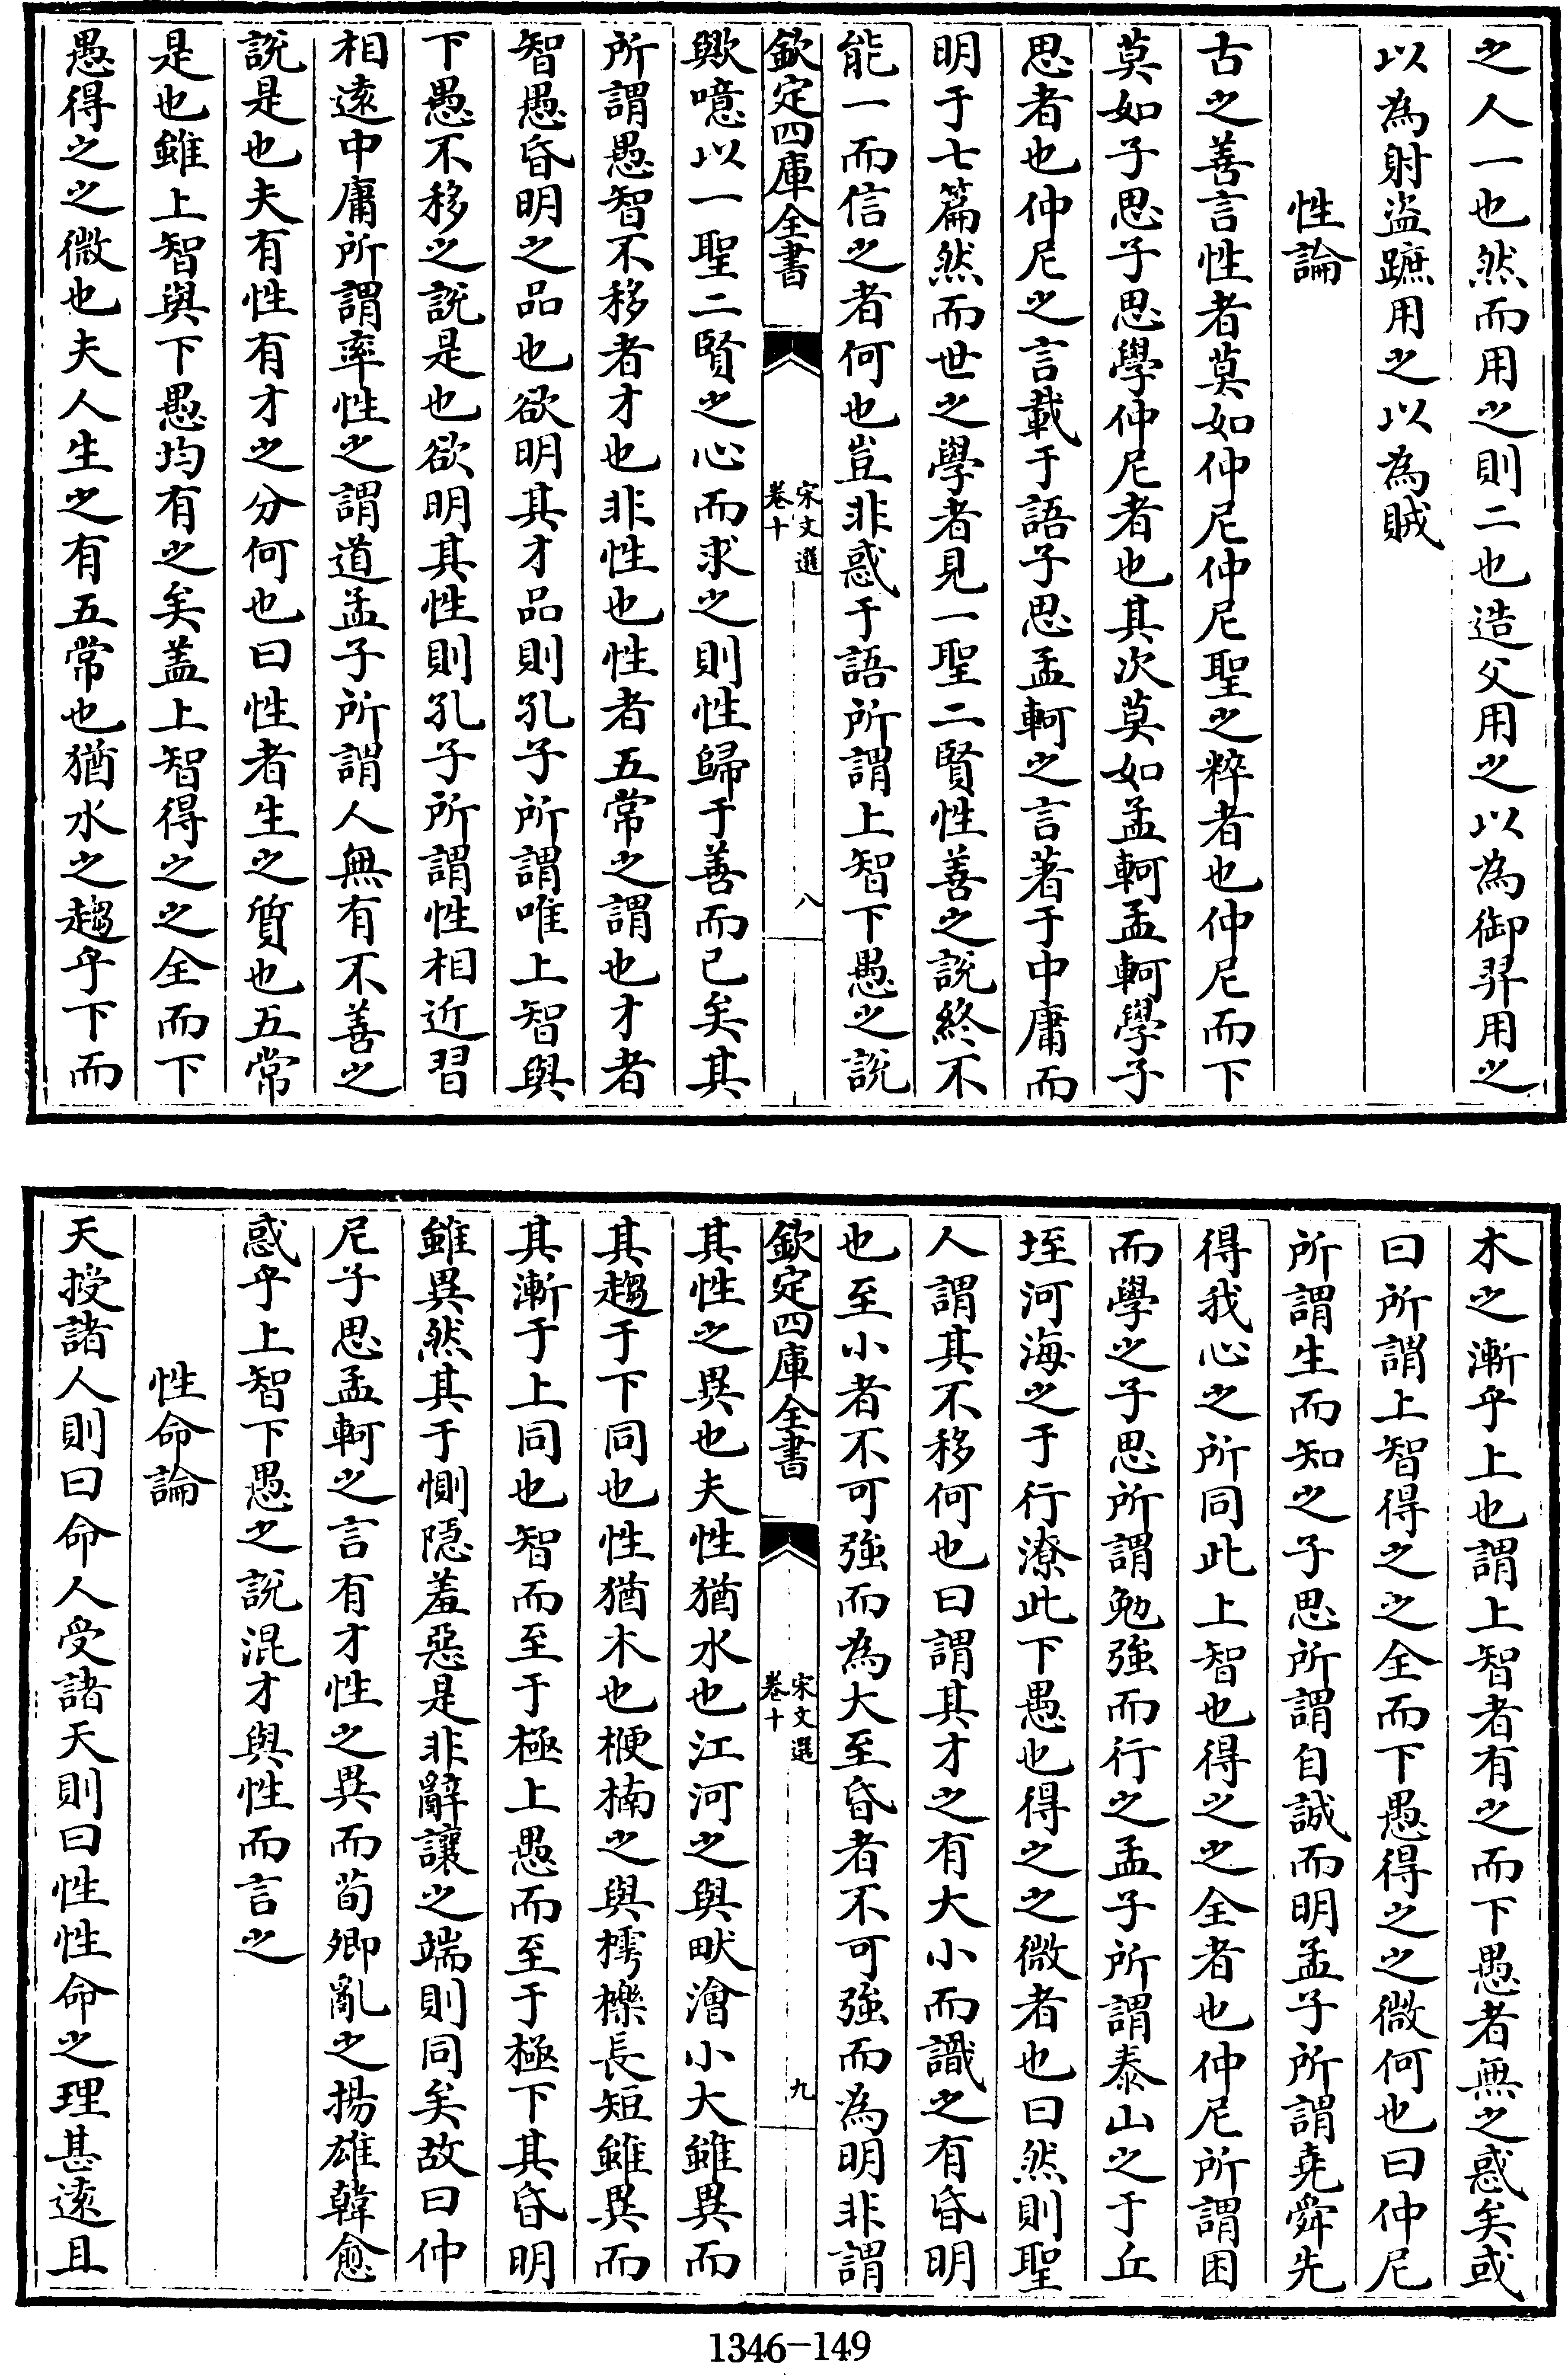 之人一也然而用之則二也造父用之以為御羿用之
以為射盜蹠用之以為賊
性論
古之善言性者莫如仲尼仲尼聖之粹者也仲尼而下
莫如子思子思學仲尼者也其次莫如孟軻孟軻學子
思者也仲尼之言載于語子思孟軻之言著于中庸而
明于七篇然而世之學者見一聖二賢性善之說終不
能一而信之者何也豈非惑于語所謂上智下愚之說
欽定四庫全書
宋文選
卷十
八
歟噫以一聖二賢之心而求之則性歸于善而已矣其
所謂愚智不移者才也非性也性者五常之謂也才者
智愚昏明之品也欲明其才品則孔子所謂唯上智與
下愚不移之說是也欲明其性則孔子所謂性相近習
相遠中庸所謂率性之謂道孟子所謂人無有不善之
說是也夫有性有才之分何也曰性者生之質也五常
是也雖上智與下愚均有之矣盖上智得之之全而下
愚得之之微也夫人生之有五常也猶水之趨乎下而
木之漸乎上也謂上智者有之而下愚者無之惑矣或
曰所謂上智得之之全而下愚得之之微何也曰仲尼
所謂生而知之子思所謂自誠而明孟子所謂堯舜先
得我心之所同此上智也得之之全者也仲尼所謂困
而學之子思所謂勉強而行之孟子所謂泰山之于丘
垤河海之于行潦此下愚也得之之微者也曰然則聖
人謂其不移何也曰謂其才之有大小而識之有昏明
也至小者不可強而為大至昏者不可強而為明非謂
欽定四庫全書
宋文選
卷十
九
其性之異也夫性猶水也江河之與畎澮小大雖異而
其趨于下同也性猶木也楩楠之與樗櫟長短雖異而
其漸于上同也智而至于極上愚而至于極下其昏明
雖異然其于惻隱羞惡是非辭讓之端則同矣故曰仲
尼子思孟軻之言有才性之異而荀卿亂之揚雄韓愈
惑乎上智下愚之說混才與性而言之
性命論
天授諸人則曰命人受諸天則曰性性命之理甚遠且
1346-149